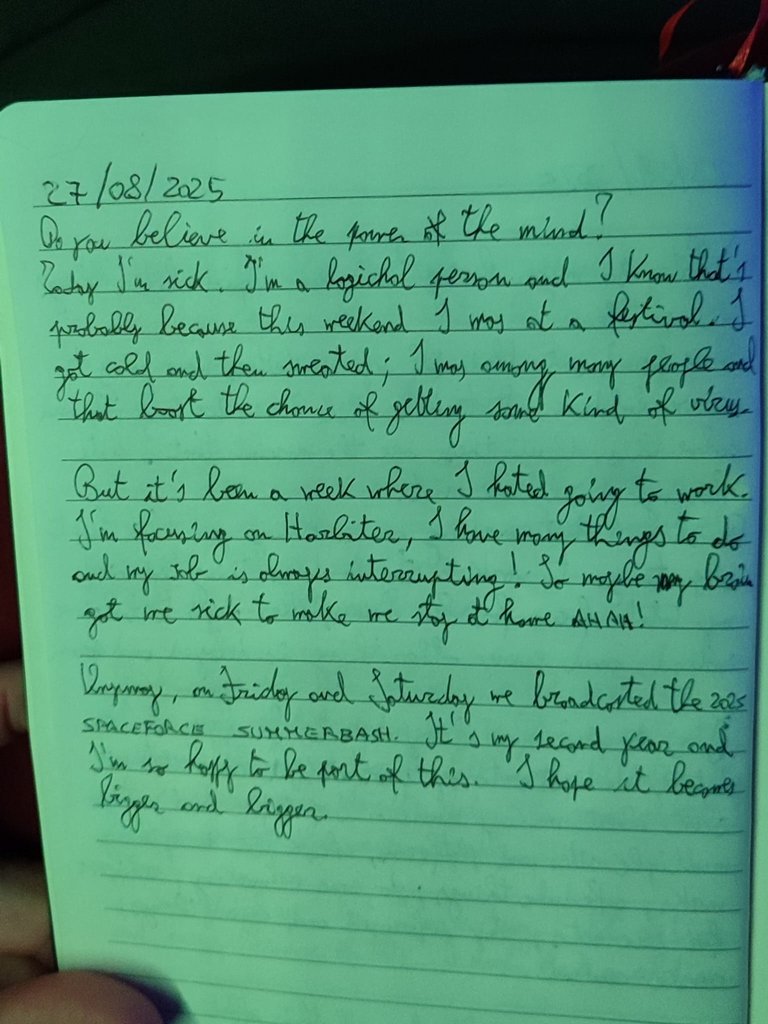 27/08/2025
Do you believe in the power of the mind?
Today I'm sick. I'm a logichal person and I know that's
probably because this weekend I was at a festival. I
got cold and then sweated; I was among many people and
that boost the chance of getting some kind of virus.
But it's been a week where I hated going to work.
I'm focusing on Harbiter, I have many things to do
and my job is always interrupting! So maybe my brain
got me sick to make me stay at home AHAH!
Anyway, on Friday and Saturday we broadcasted the 2025
SPACEFORCE SUMMERBASH. It's my second year and
I'm so happy to be part of this. I hope it becomes
bigger and bigger.